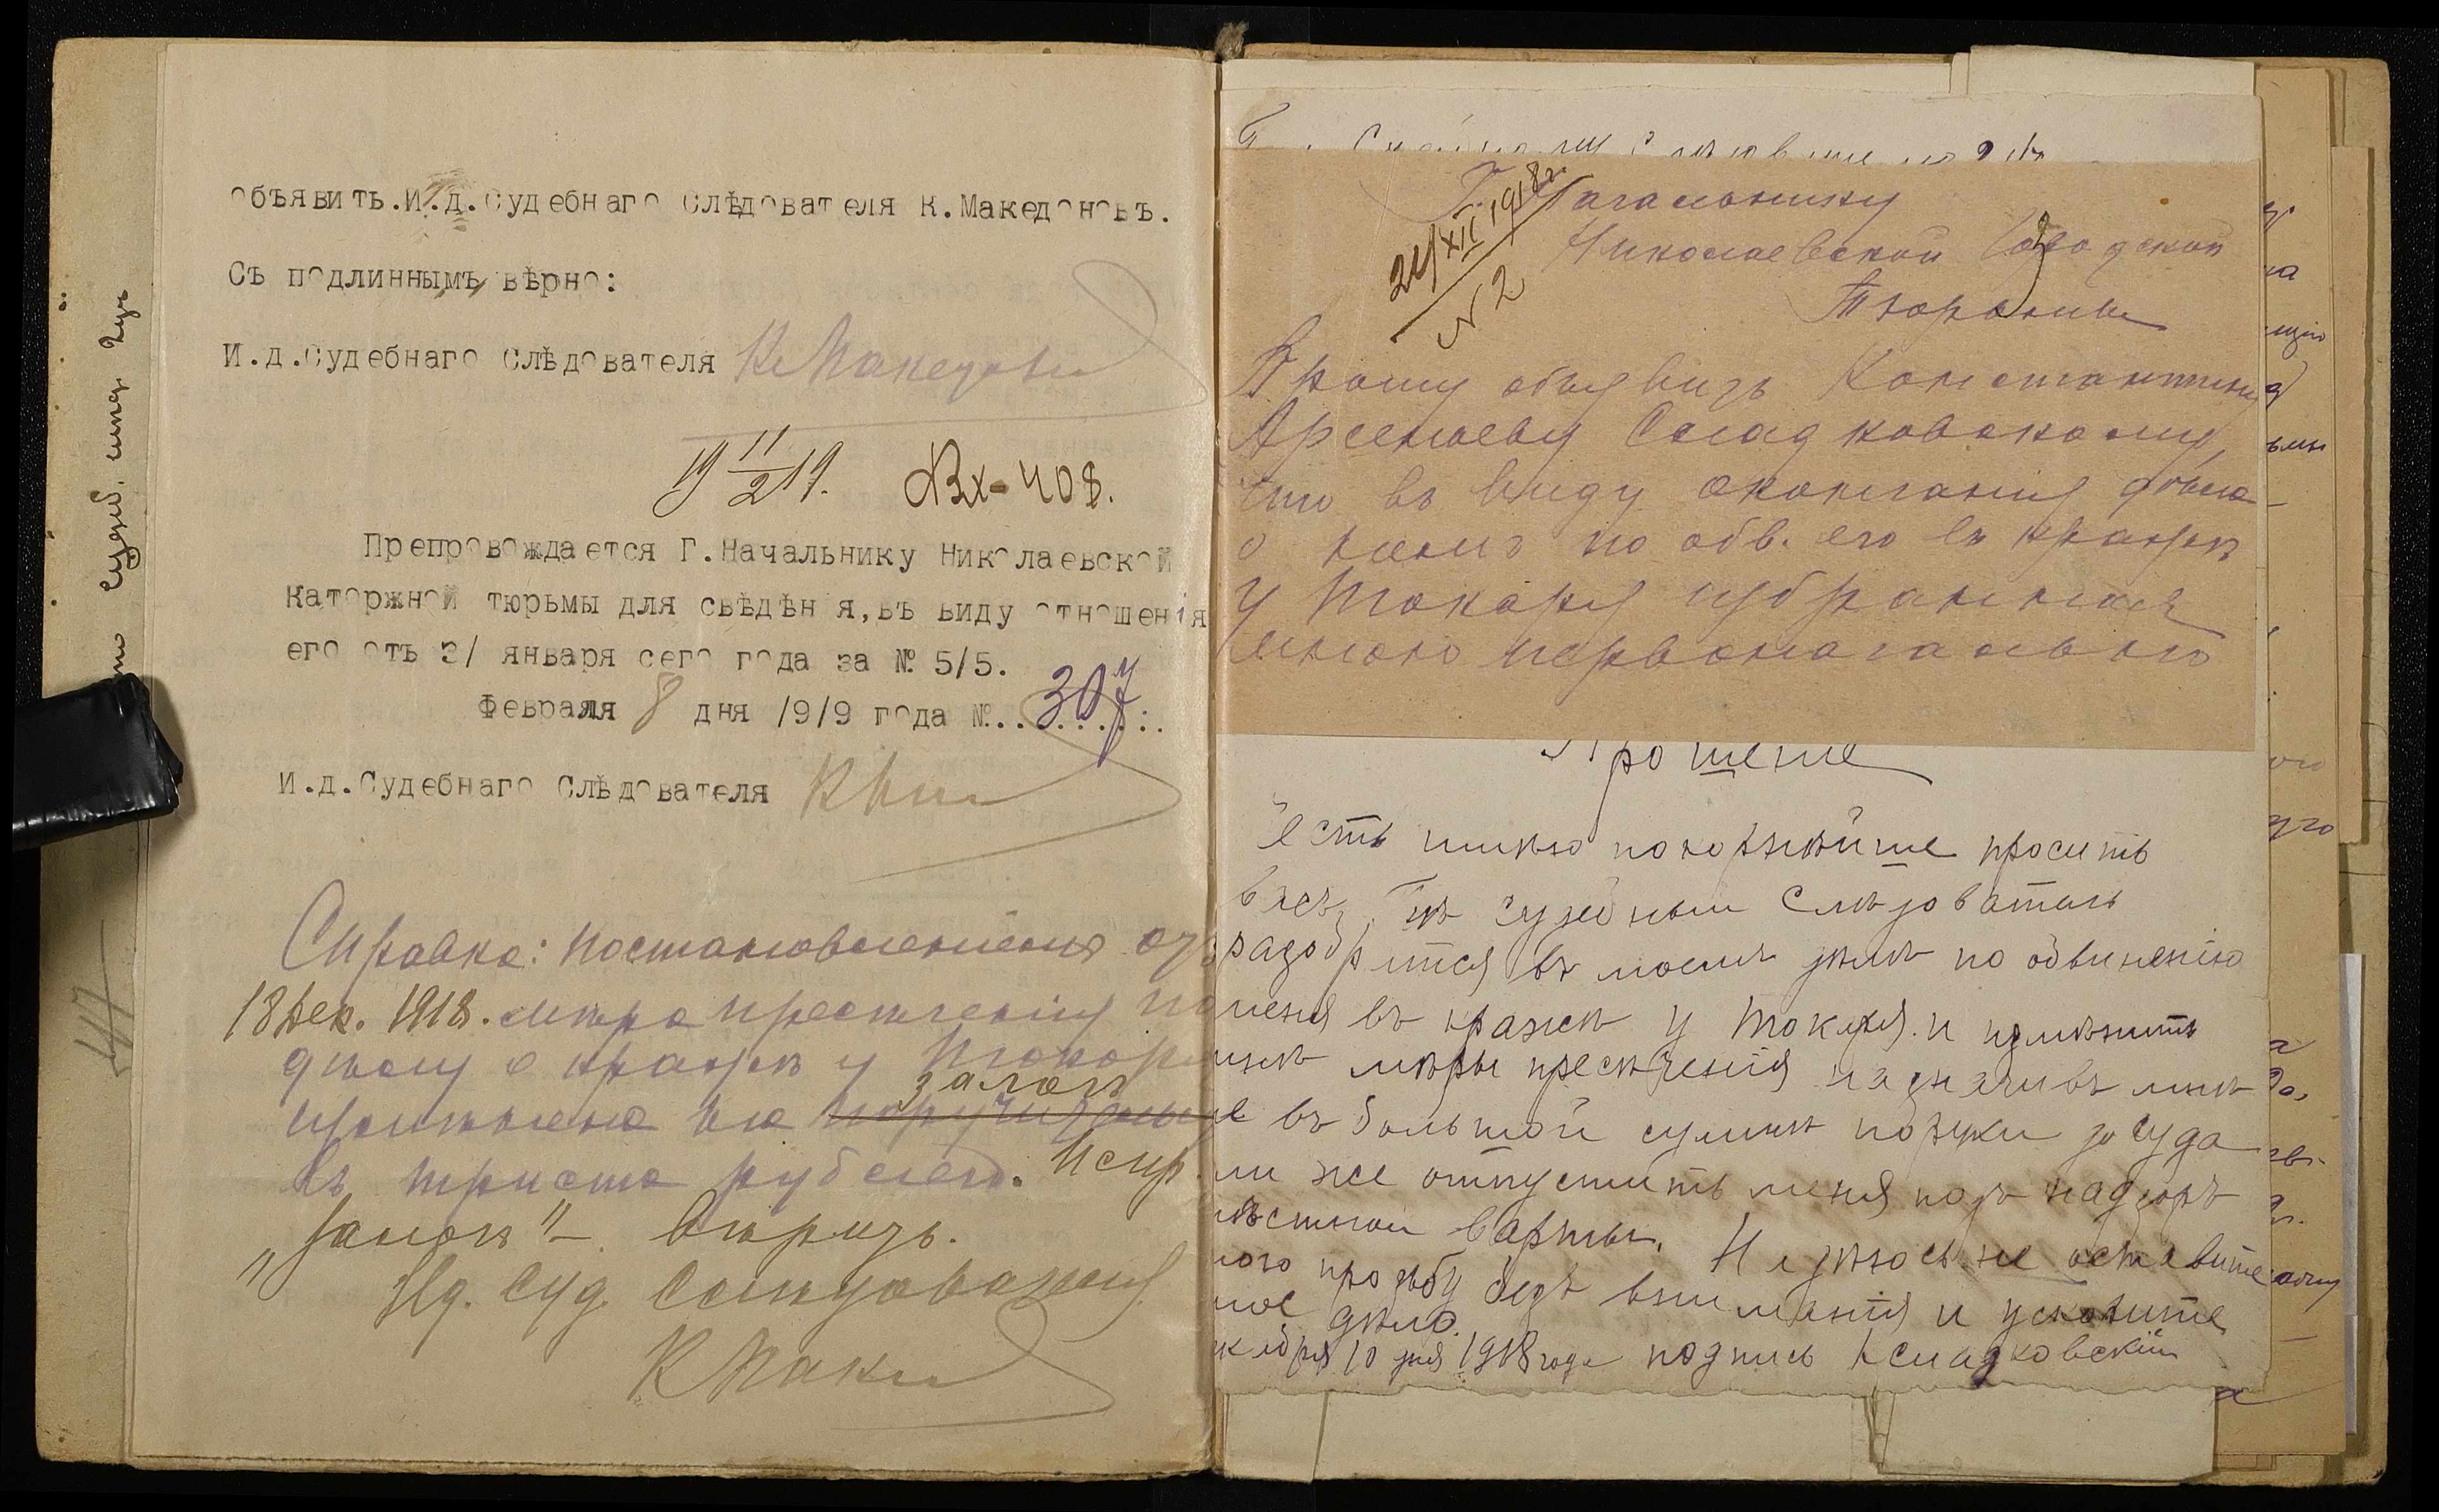 объявить.И.д.Судебнаго Слѣдователя К.Македоновъ.
Съ подлиннымъ вѣрно:
И.д.Судебнаго Слѣдователя КМакедонов
19 11/2 19. Вх-408.
Препровождается Г.Начальнику Николаевской
Каторжной тюрьмы для свѣдѣн я,въ виду отношенія
его отъ 3/ января сего года за № 5/5.
Февраля 8 дня /9/9 года №..307..
И.д.Судебнаго Слѣдователя
Справка: Постановленіемъ от
18 Дек. 1918. мѣра пресѣченія по
дѣлу о кражѣ у Токаря
залогъ
измѣнена на поручительс
въ триста рублей. Испр.
„залогъ" – вѣрить.
И.д. Суд. Слѣдователя
КМаке
47
Г. Начальнику
Николаевской Городской
Тюрьмы
24/XII 1918 г.
N 2
Прошу объявить Константину
Арсеньеву Сладковскому,
что въ виду окончанія дѣла
о немъ по обв. его въ кражѣ
у Токаря избранная
мною первоначально
Прошеніе
Честь имѣю покорнѣйше просить
васъ, Гнъ Судебный Слѣдователь
разобратся въ моемъ дѣлѣ по обвиненію
меня въ кражѣ у Токаря. и измѣнить
мнѣ мѣры пресѣченія назначивъ мнѣ
не въ большой суммѣ поруки до Суда
или же отпустить меня подъ надзоръ
мѣстной Варты. Надѣюсь не оставите
мою прозьбу безъ вниманія и ускорите
мое дѣло.
Декабря 10 дня 1918 года подпись К Сладковскій